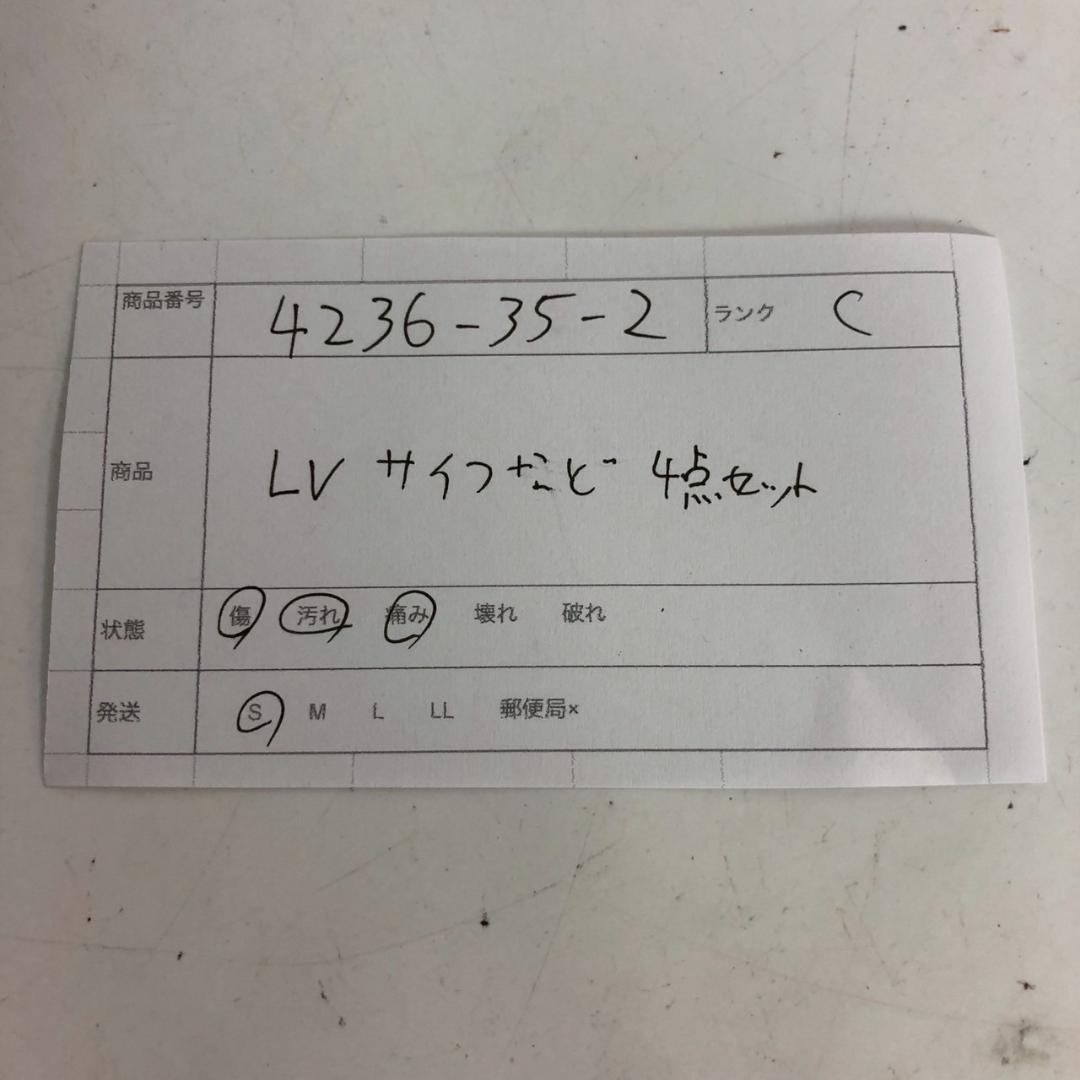 商品番号 4236-35-2 ランク C
商品 LV サイフなど 4点セット
状態 傷 汚れ 痛み 壊れ 破れ
発送 S M L LL 郵便局×